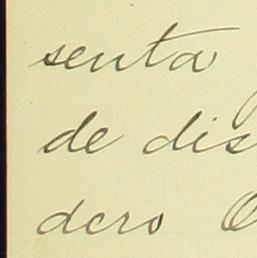 senta
de dis
dero O